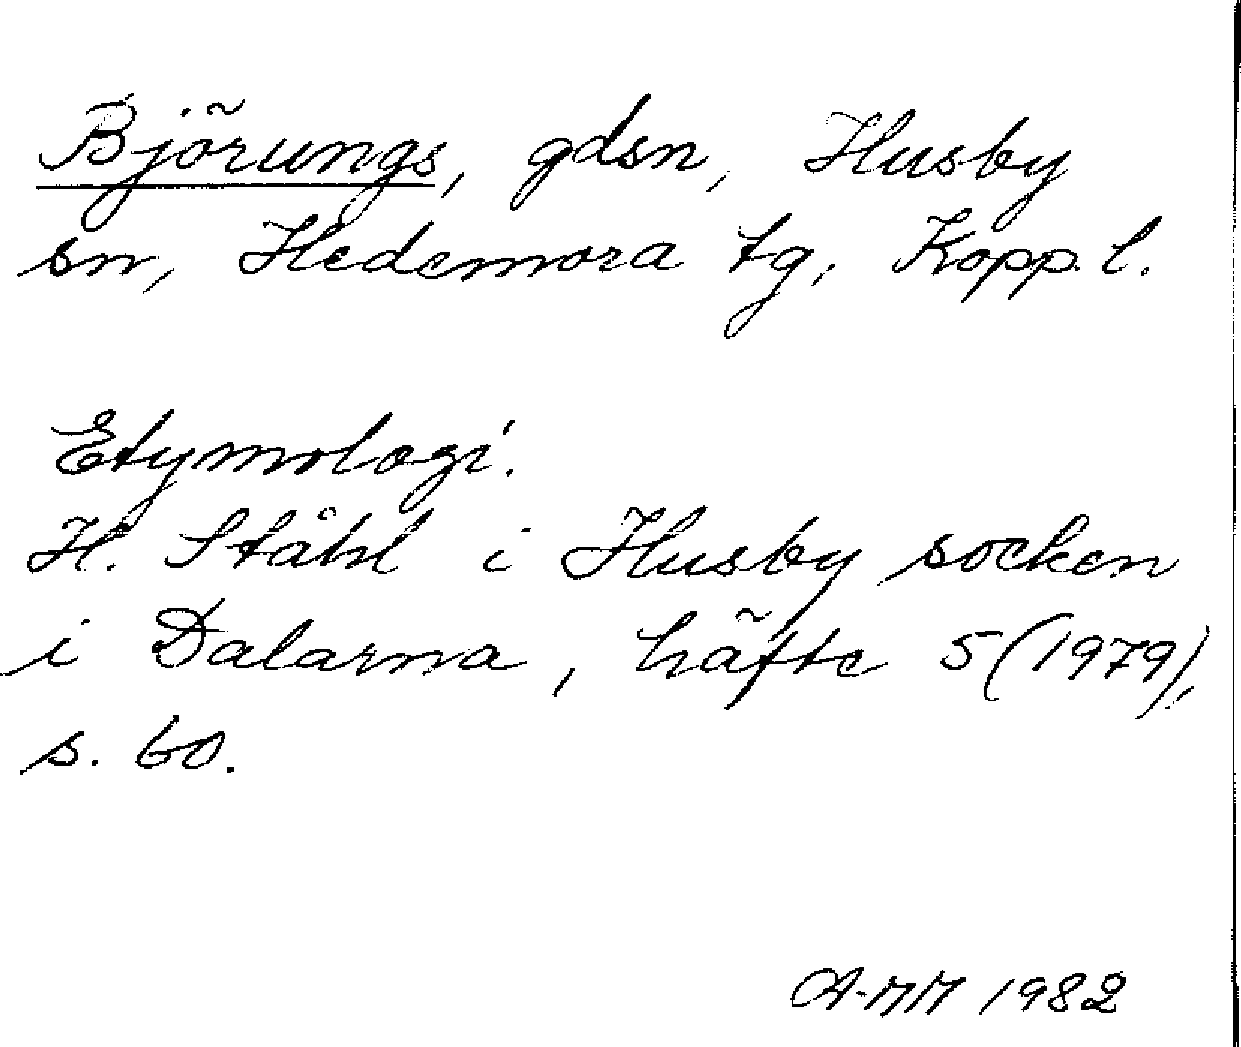 Björungs, gdsn, Husby
sn, Hedemora tg, Kopp. l.
Etymologi.
H. Ståhl i Husby socken
i Dalarna, häfte 5 (1979),
s. 60.
A-MM 1982